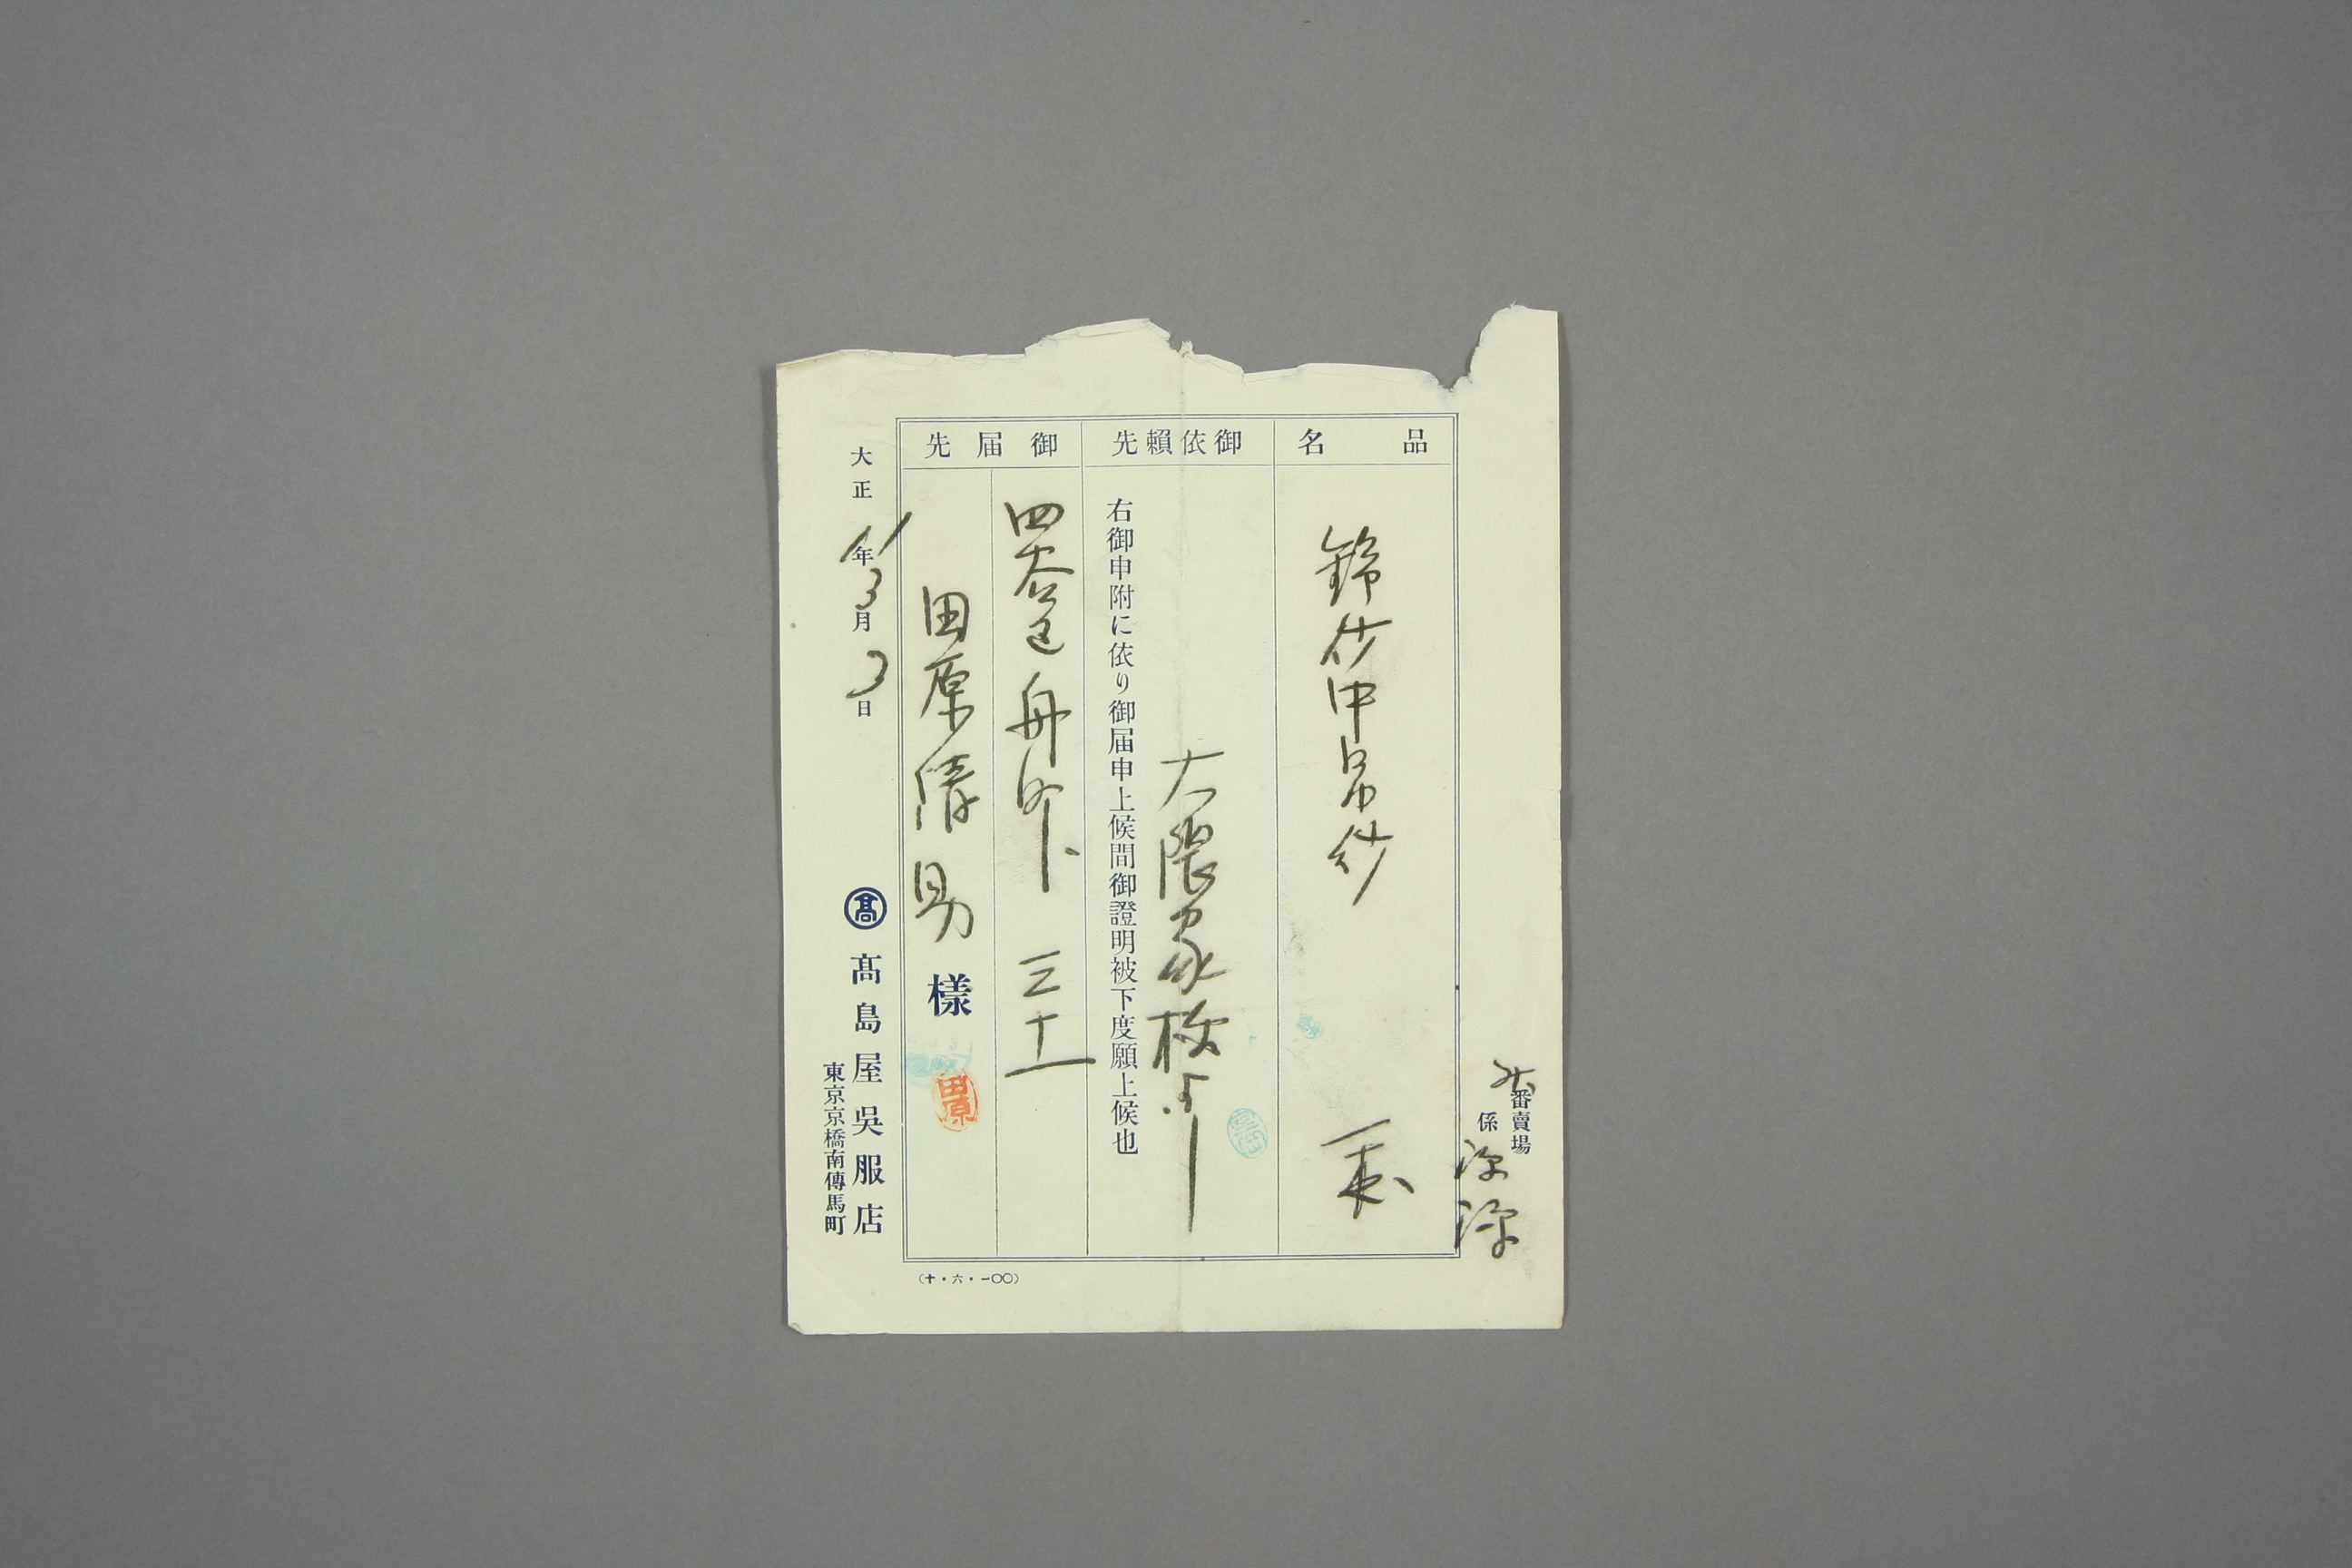 番賣場
係
品名
中帛紗
一
御依賴先
大隈家樣ゟ
右御申附に依り御届申上候間御證明被下度願上候也
御届先
四谷區舟町三十
田原清
樣
田原
大正11年3月3日
髙
髙島屋吳服店
東京京橋南傳馬町
(十・六・一〇〇)